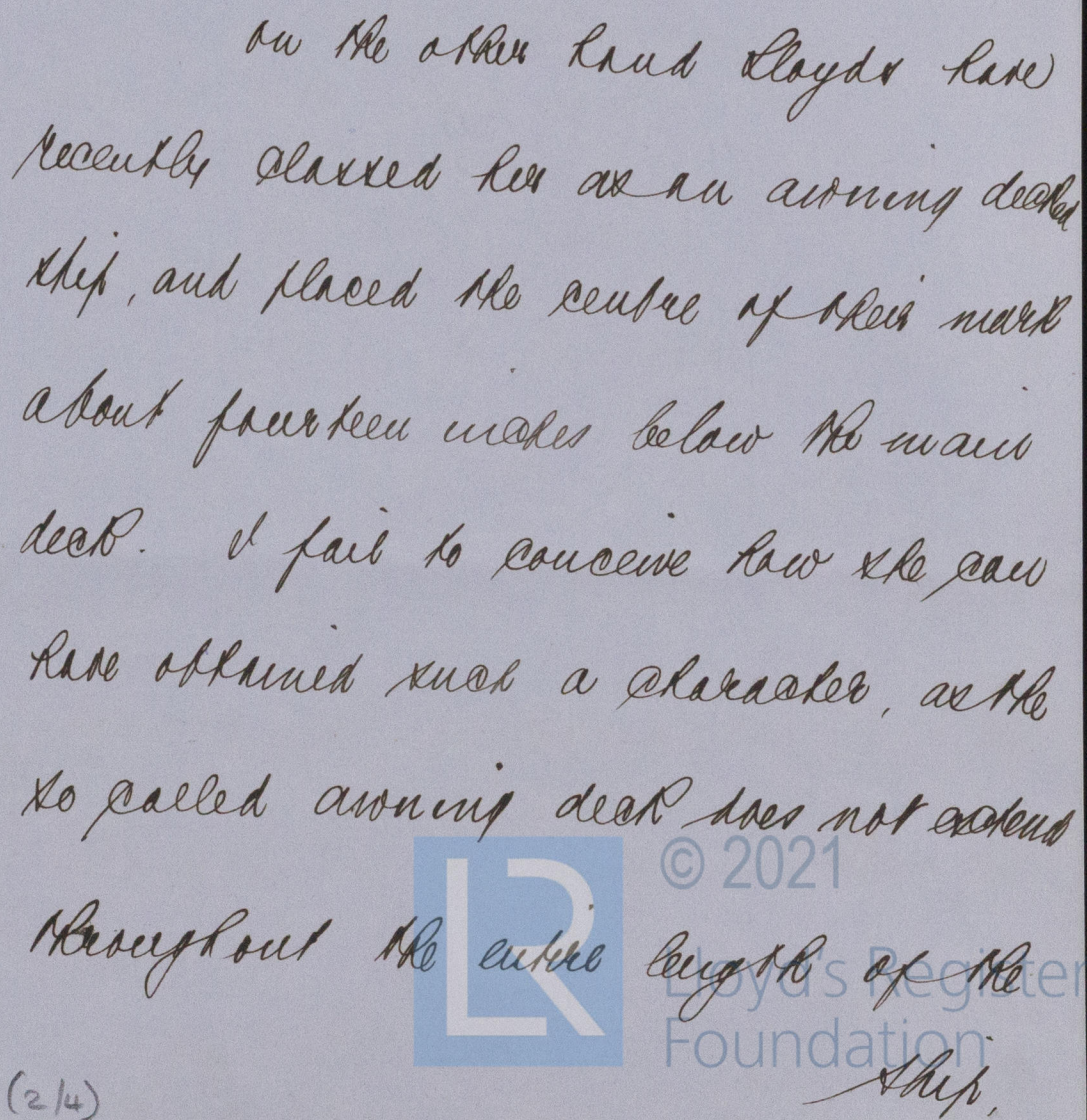 on the other hand Lloyds have
recently classed her as an awning decked
ship, and placed the centre of their mark
about fourteen inches below the main
deck. I fail to conceive how she can
have obtained such a character, as the
so called awning deck does not extend
throughout the entire length of the
ship,
(2/4)
LR
© 2021
Lloyd's Register
Foundation